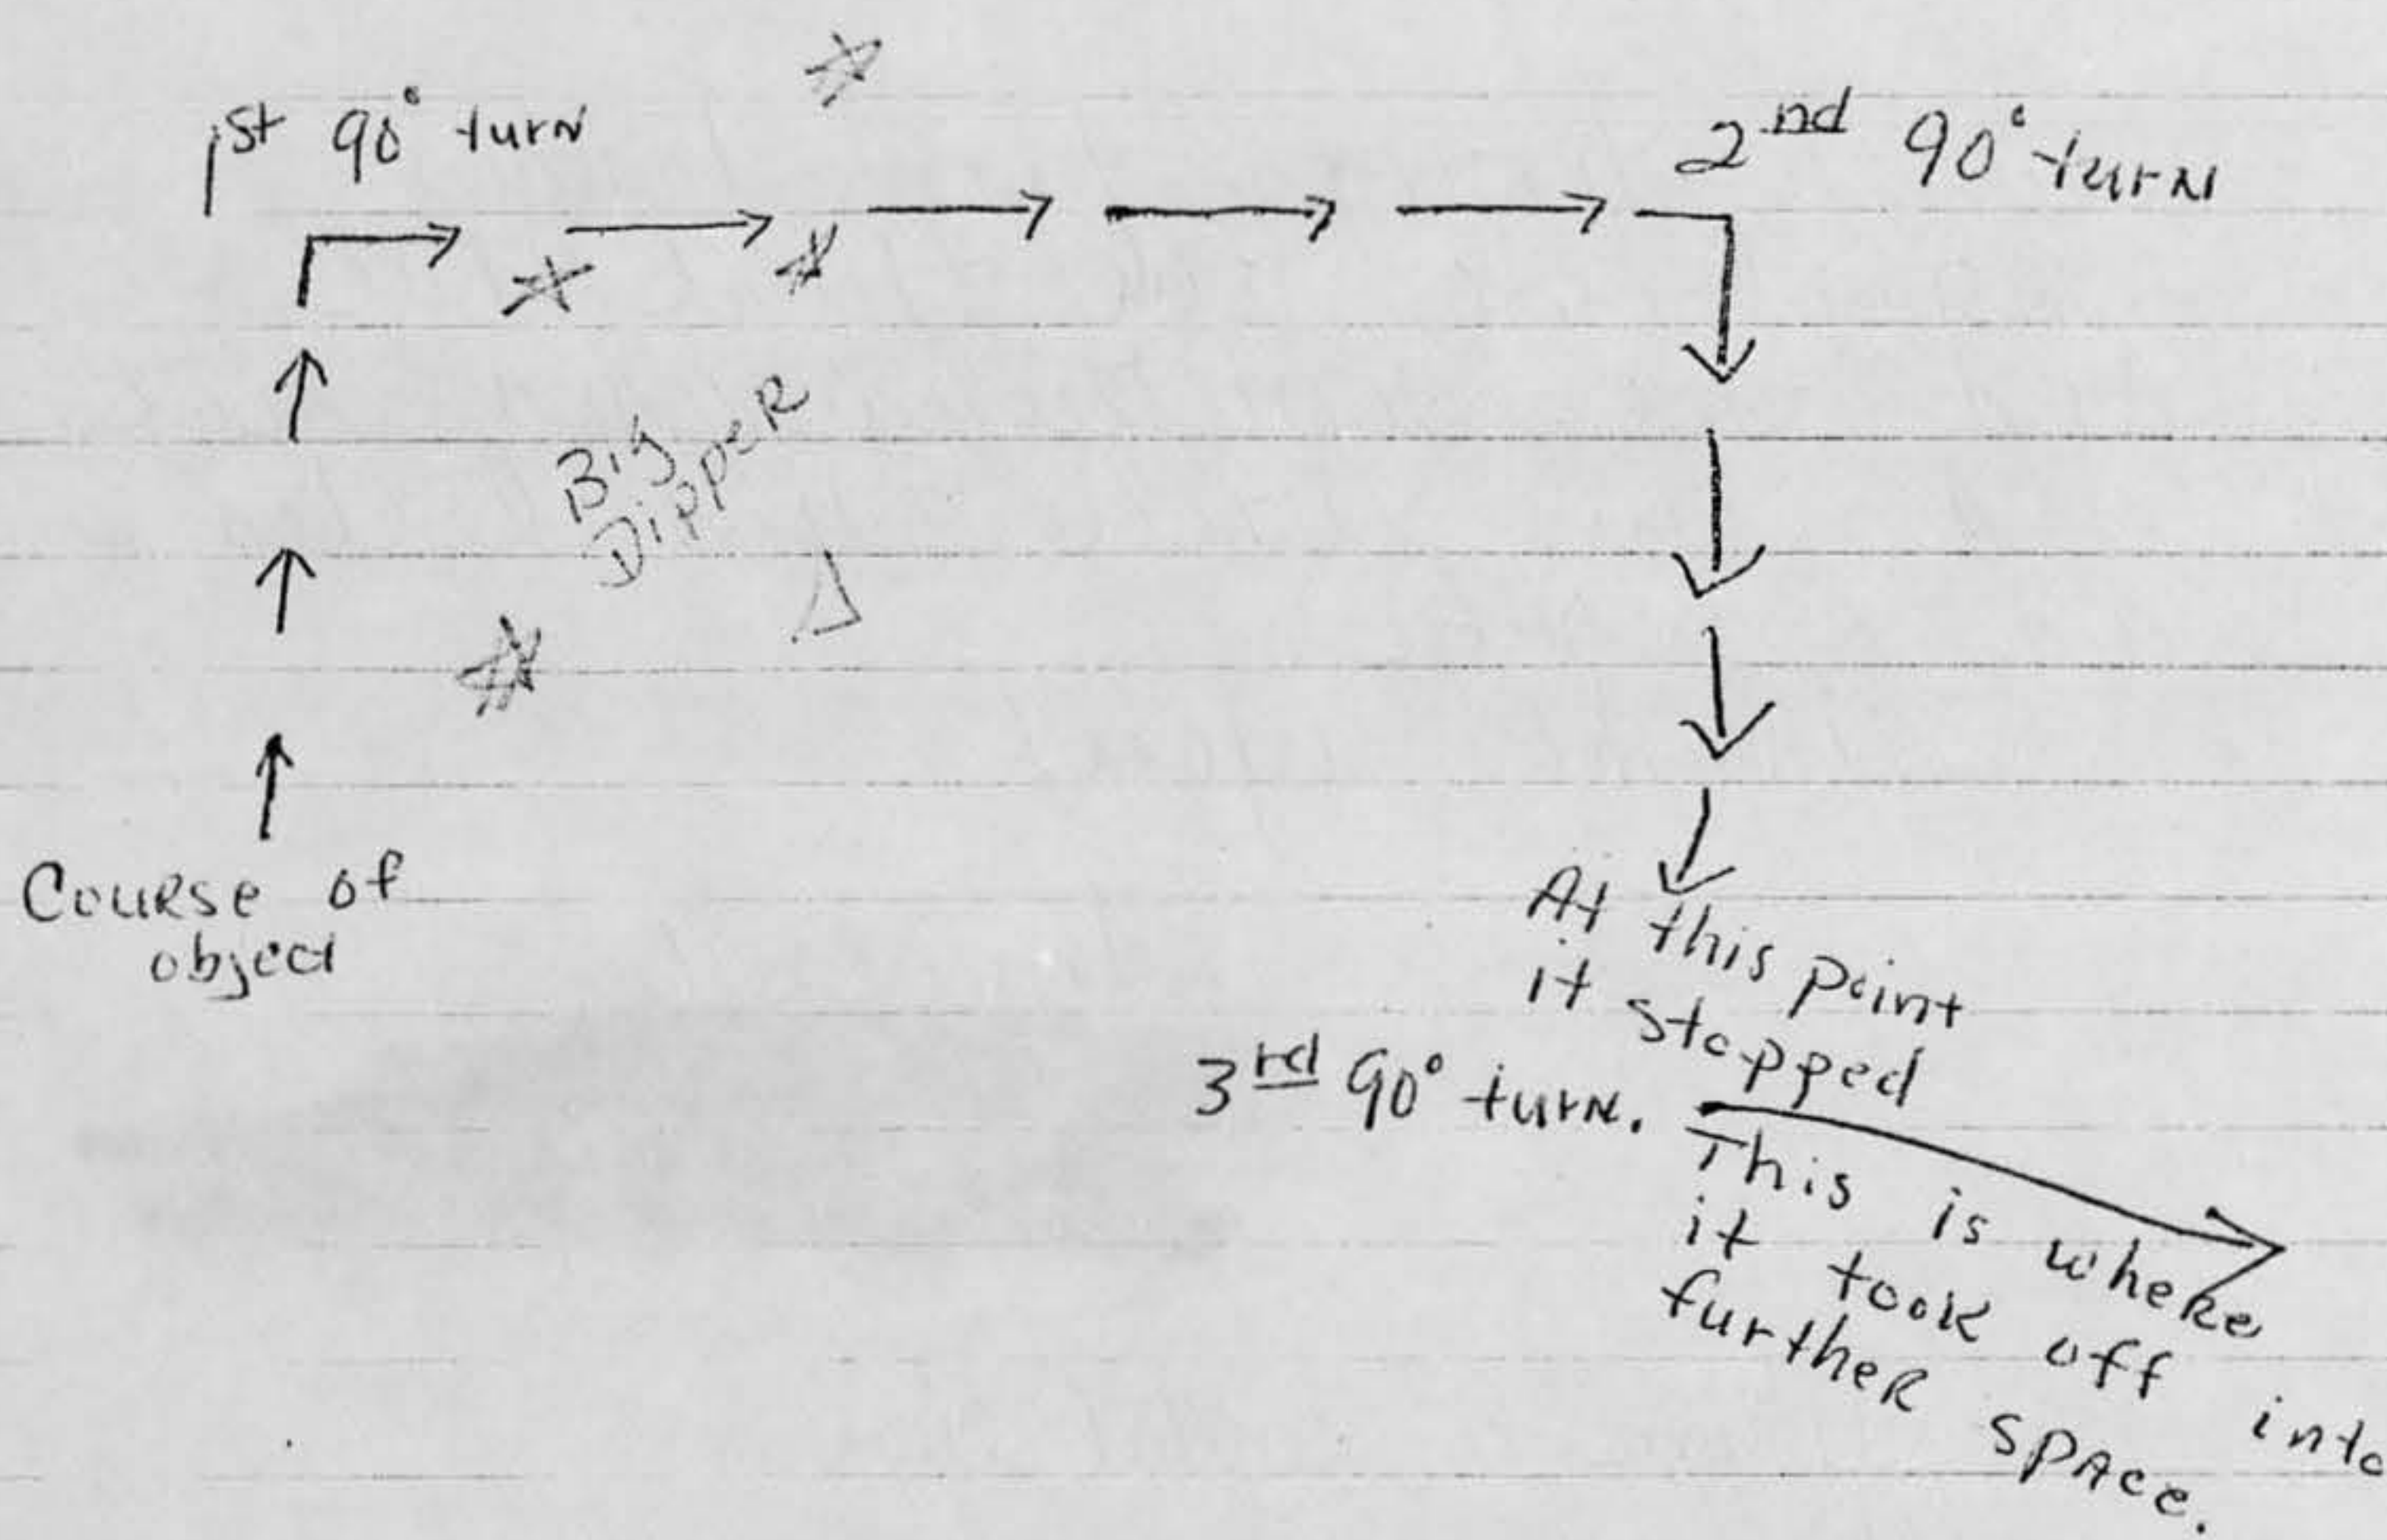 1st 90° turn
2nd 90° turn
Big
Dipper
Course of
object
At this point
it stopped
3rd 90° turn.
This is where
it took off into
further space.